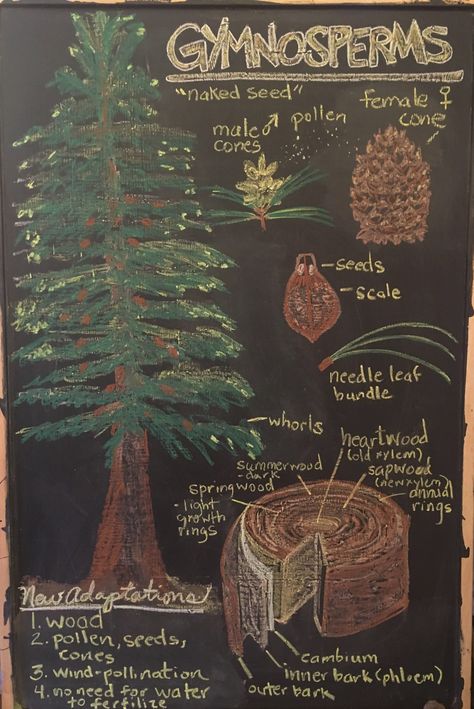 GYMNOSPERMS
"naked seed"
male ♂
cones
pollen
female ♀
cone
seeds
scale
needle leaf
bundle
whorls
heartwood
(old xylem)
summerwood
- dark
sapwood
(new xylem)
springwood
- light
growth
rings
annual
rings
New Adaptations
1. wood
2. pollen, seeds,
cones
3. wind-pollination
4. no need for water
to fertilize
cambium
inner bark (phloem)
outer bark